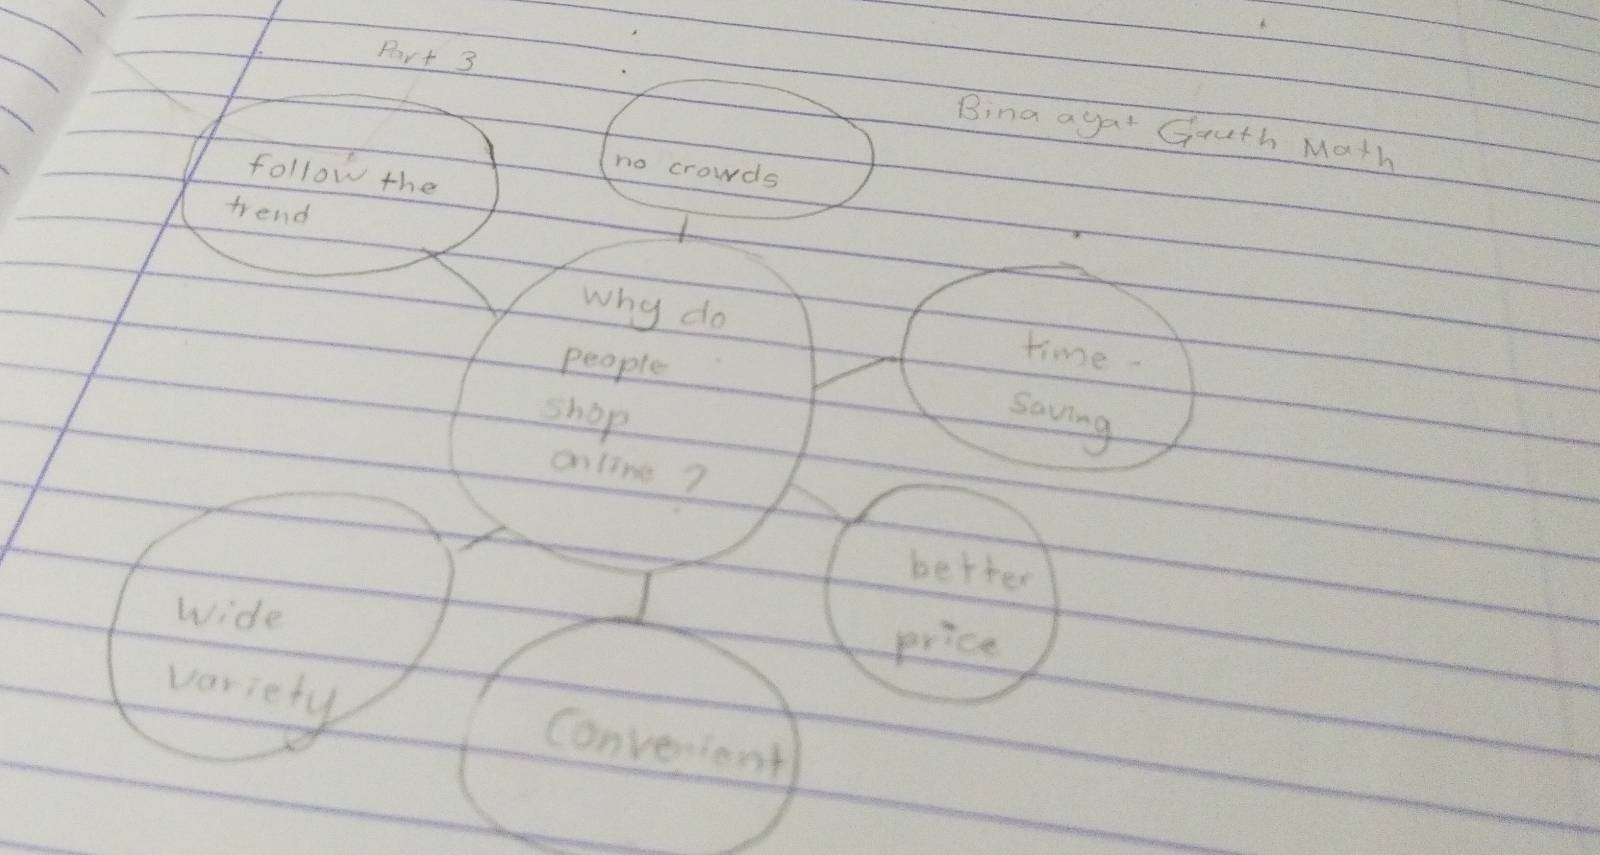 Part 3
Bina ayat Gauth Math
follow the
trend
no crowds
why do
people
shop
online ?
time -
saving
better
price
wide
variety
convenient